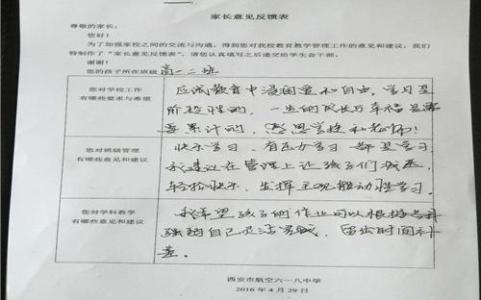 家长意见反馈表
尊敬的家长：
您好！
为了加强家校之间的交流与沟通，得到您对我校教育教学管理工作的意见和建议，我们
特制作了“家长意见反馈表”，请您认真填写之后递交给学生会干部。
谢谢！
您的孩子所在班级 高一二班
您对学校工作
有哪些要求与希望
应试教育中 和自由，学习是
阶段性的，一生的成长与幸福是需
要累计的，感恩学校和老师！
您对班级管理
有哪些意见和建议
快乐学习，有压力学习 都是学习
我建议在管理上让孩子们减压，
轻松快乐，发挥主观能动性学习。
您对学科教学
有哪些意见和建议
我希望孩子的作业可以根据
强弱自己 ，留出时间补
差。
西安市航空六一八中学
2016 年 4 月 29 日